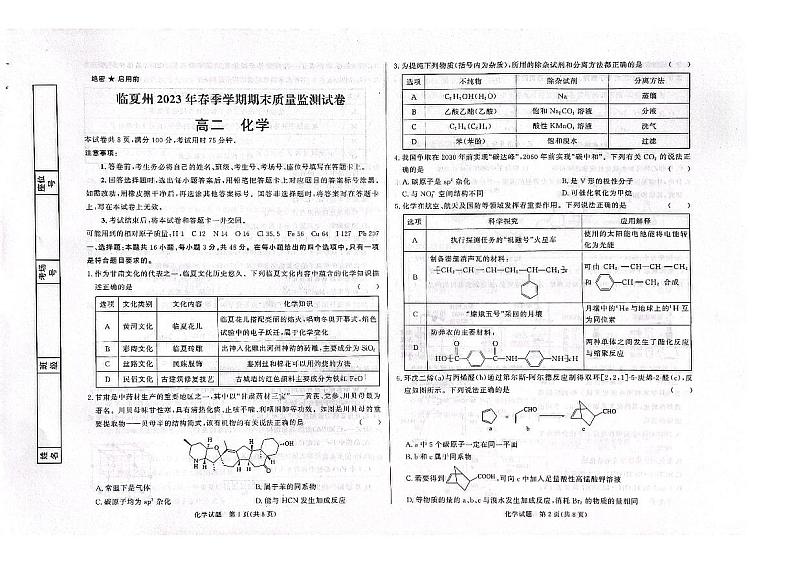 绝密 ★ 启用前
临夏州 2023 年春季学期期末质量监测试卷
高二 化学
本试卷共 8 页,满分 100 分,考试用时 75 分钟。
注意事项:
1.答卷前,考生务必将自己的姓名、班级、考生号、考场号、座位号填写在答题卡上。
2.回答选择题时,选出每小题答案后,用铅笔把答题卡对应题目的答案标号涂黑。
如需改动,用橡皮擦干净后,再选涂其他答案标号。回答非选择题时,将答案写在答题卡
上,写在本试卷上无效。
3.考试结束后,将本试卷和答题卡一并交回。
可能用到的相对原子质量:H 1 C 12 N 14 O 16 Cl 35.5 Fe 56 Cu 64 I 127 Pb 207
一、选择题:本题共 16 小题,每小题 3 分,共 48 分。在每小题给出的四个选项中,只有一项
是符合题目要求的。
1.作为甘肃文化的代表之一,临夏文化历史悠久。下列临夏文化内容中蕴含的化学知识描
述正确的是 ( )
选项 文化类别 文化内容 化学知识
A 黄河文化 临夏花儿 临夏花儿搭配亮丽的焰火,唱响冬奥开幕式,焰色
试验中的电子跃迁,属于化学变化
B 彩陶文化 临夏砖雕 出神入化雕出河州神韵的砖雕,主要成分为 SiO₂
C 丝路文化 民族服饰 鉴别丝和棉花可以用灼烧的方法
D 民俗文化 古建筑修复技艺 古城墙的红色颜料主要成分为铁红 FeO
2.甘肃是中药材生产的重要地区之一,其中以“甘肃药材三宝”——黄芪、党参、川贝母最为
著名。川贝母味甘性寒,具有清热化痰、止咳平喘、利咽润肺等功效。如图是川贝母的重
要提取物——贝母辛的结构简式,该有机物的有关说法正确的是 ( )
H
N
H
O
H
OH
O
A.常温下是气体 B.属于苯的同系物
C.碳原子均为 sp³ 杂化 D.能与 HCN 发生加成反应
化学试题 第 1 页(共 8 页)
3.为提纯下列物质(括号内为杂质),所用的除杂试剂和分离方法都正确的是 ( )
选项 不纯物 除杂试剂 分离方法
A C₂H₅OH(H₂O) Na 蒸馏
B 乙酸乙酯(乙酸) 饱和 Na₂CO₃ 溶液 分液
C C₂H₆(C₂H₄) 酸性 KMnO₄ 溶液 洗气
D 苯(苯酚) 饱和溴水 过滤
4.我国争取在 2030 年前实现“碳达峰”,2060 年前实现“碳中和”。下列有关 CO₂ 的说法正
确的是 ( )
A.碳原子是 sp² 杂化 B.是 V 形的极性分子
C.与 NO₂⁺ 空间结构不同 D.可催化氧化为甲烷
5.化学在航空、航天及国防等领域发挥着重要作用。下列说法正确的是 ( )
选项 科学探究 应用解释
A 执行探测任务的“祝融号”火星车 使用的太阳能电池能将电能转
化为光能
B 制备潜艇消声瓦的材料:
⁅CH₂—CH=CH—CH₂—CH₂—CH⁆ₙ
可由 CH₂=CH—CH=CH₂
和 CH=CH₂ 合成
C “嫦娥五号”采回的月壤 月壤中的 ³He 与地球上的 ³H 互
为同位素
D 防弹衣的主要材料:
HO⁅C—C—NH—NH⁆ₙH
O O
两种单体之间发生了酯化反应
与缩聚反应
6.环戊二烯(a)与丙烯醛(b)通过第尔斯-阿尔德反应制得双环[2,2,1]-5-庚烯-2-醛(c),反
应如图所示。下列说法正确的是 ( )
+ CHO → CHO
a b c
A. a 中 5 个碳原子一定在同一平面
B. b 和 c 属于同系物
C.若要得到 COOH,可向 c 中加入足量酸性高锰酸钾溶液
D.等物质的量的 a、b、c 与溴水发生加成反应,消耗 Br₂ 的物质的量相同
化学试题 第 2 页(共 8 页)
座位号
考场号
班级
姓名